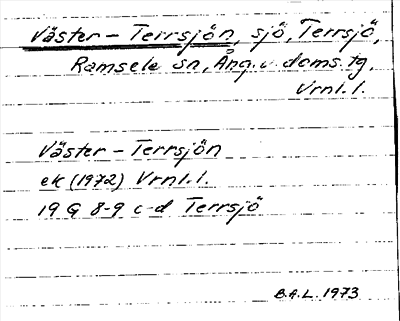 Väster - Terrsjön, sjö, Terrsjö,
Ramsele sn, Ång. v. doms. tg,
Vrnl. l.
Väster - Terrsjön
ek (1972) Vrnl. l.
19 G 8-9 c-d Terrsjö
B.A.L. 1973